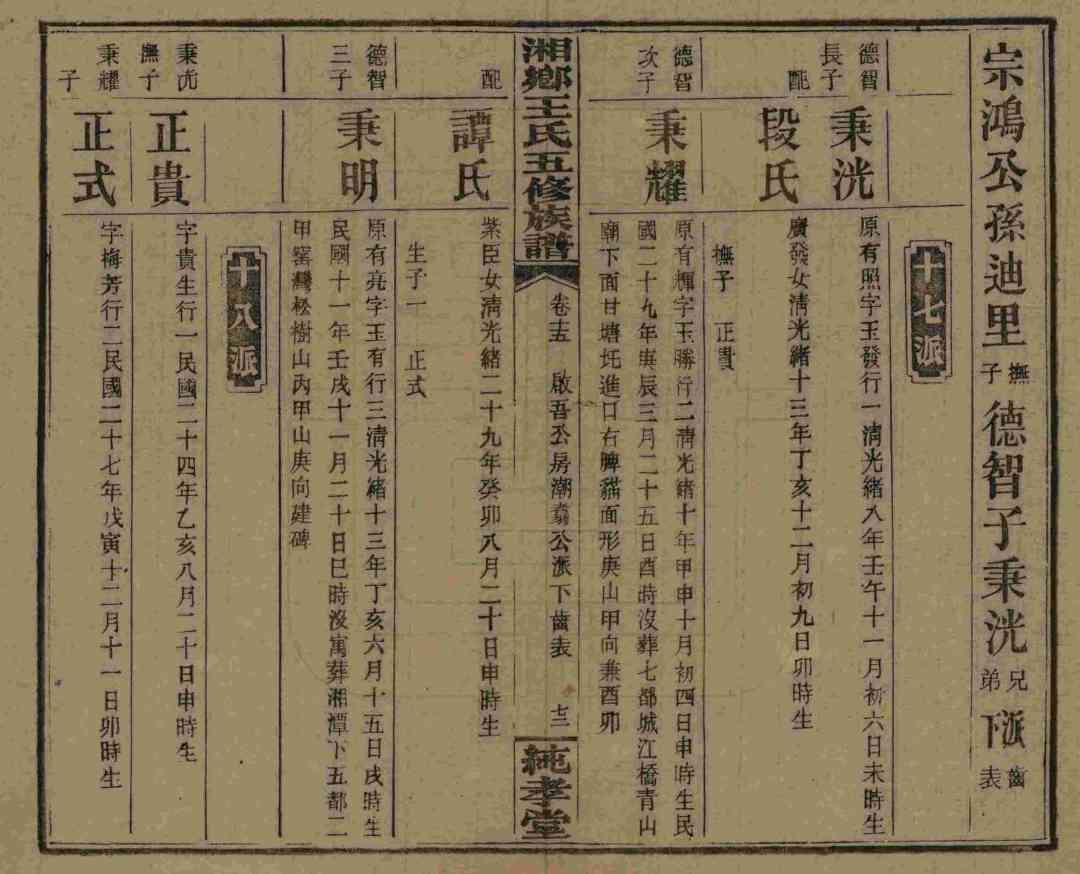 宗鴻公孫迪里撫子德智子秉洸兄弟派下齒表
十七派
德智長子
秉洸
原有照字玉發行一清光緒八年壬午十一月初六日未時生
配
段氏
廣發女清光緒十三年丁亥十二月初九日卯時生
撫子 正貴
德智次子
秉耀
原有輝字玉勝行二清光緒十年甲申十月初四日申時生民
國二十九年庚辰三月二十五日酉時沒葬七都城江橋青山
廟下面甘塘圫進口右脾貓面形庚山甲向兼酉卯
湘鄉王氏五修族譜
卷十五 啟吾公房潮 公派下齒表 七三
純孝堂
配
譚氏
紫臣女清光緒二十九年癸卯八月二十日申時生
生子一 正式
德智三子
秉明
原有亮字玉有行三清光緒十三年丁亥六月十五日戌時生
民國十一年壬戌十一月二十日巳時沒寓葬湘潭下五都二
甲窰灣松樹山丙甲山庚向建碑
十八派
秉洸撫子
正貴
字貴生行一民國二十四年乙亥八月二十日申時生
秉耀子
正式
字梅芳行二民國二十七年戊寅十二月十一日卯時生